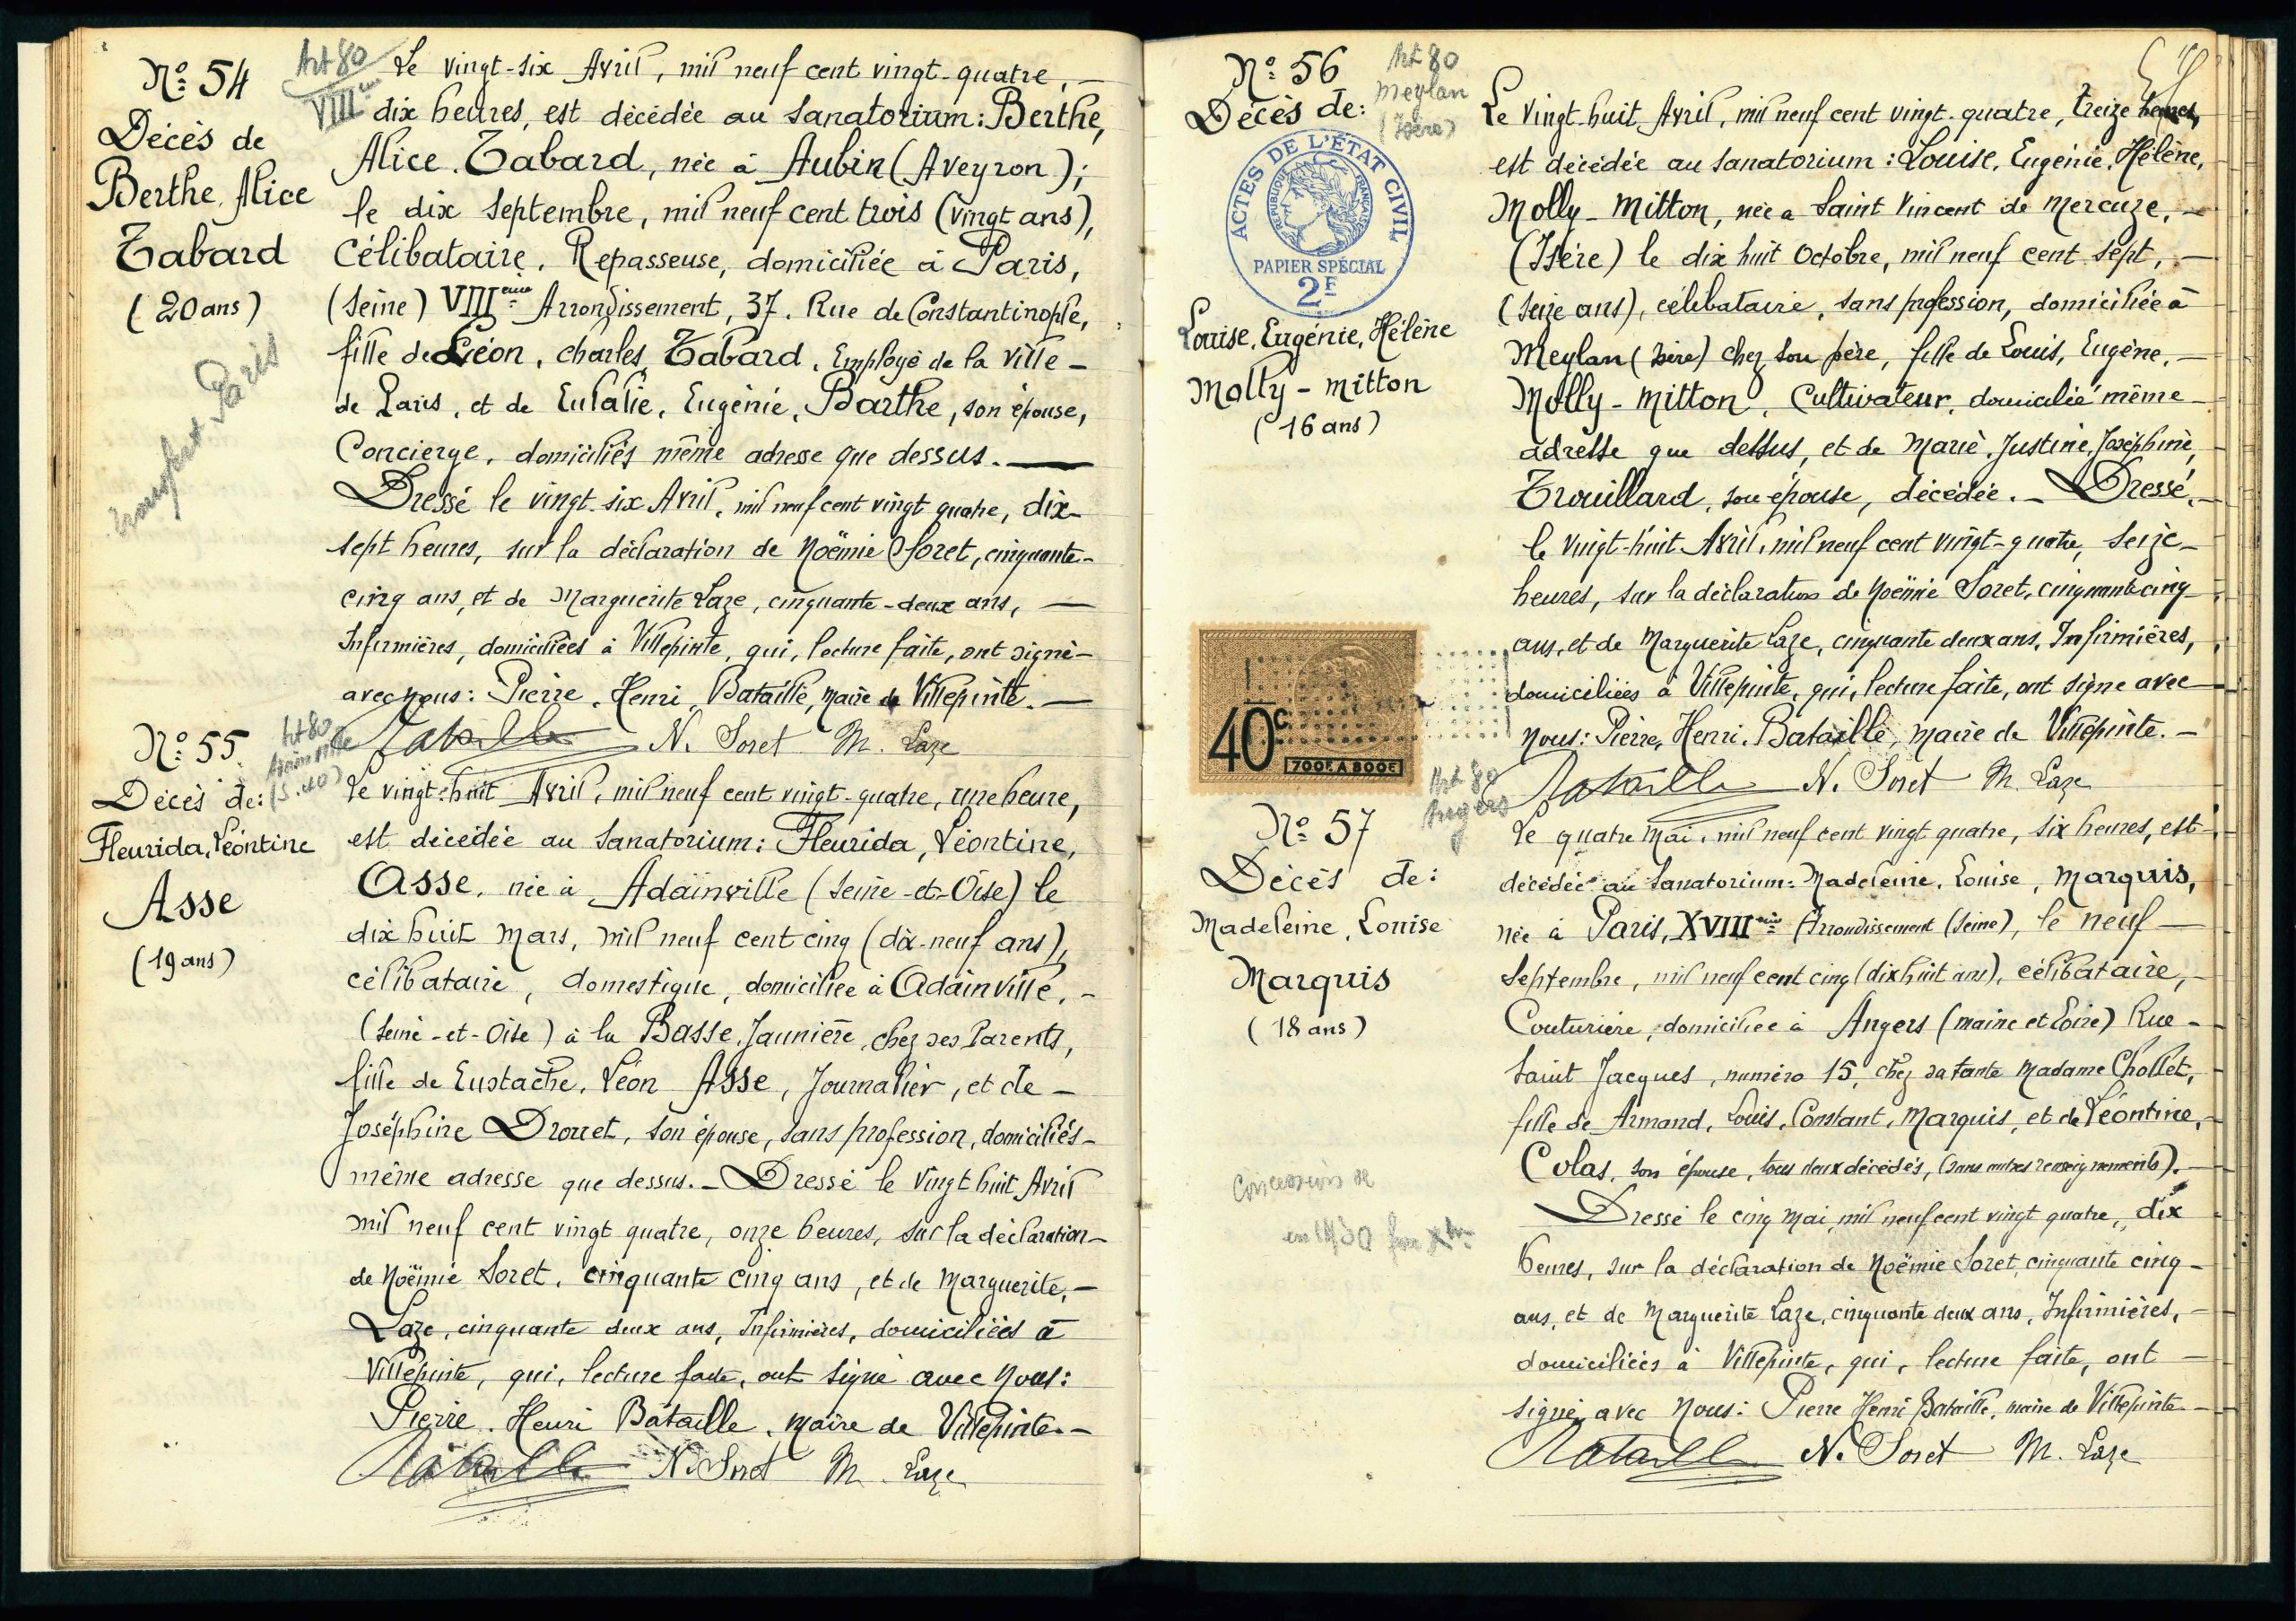 Nº 54
Décès de
Berthe, Alice
Tabard
(20 ans)
Art 80
VIIIème
Paris
Le vingt-six Avril, mil neuf cent vingt-quatre, —
dix heures, est décédée au Sanatorium: Berthe,
Alice. Tabard, née à Aubin (Aveyron);
le dix Septembre, mil neuf cent trois (vingt ans),
Célibataire. Repasseuse, domiciliée à Paris,
(Seine) VIIIème Arrondissement, 37. Rue de Constantinople,
fille de Léon, Charles, Tabard. Employé de la Ville —
de Paris, et de Eulalie, Eugénie, Barthe, son épouse,
Concierge, domiciliés même adresse que dessus. —
Dressé le vingt-six Avril, mil neuf cent vingt quatre, dix-
sept heures, sur la déclaration de Noëmie Soret, cinquante-
cinq ans, et de Marguerite Laze, cinquante-deux ans, —
Infirmières, domiciliées à Villepinte, qui, lecture faite, ont signé —
avec nous: Pierre, Henri, Bataille, Maire de Villepinte. —
Bataille N. Soret M. Laze
Nº 55
Art 80
Adainville
(S. et O)
Décès de:
Fleurida, Léontine
Asse
(19 ans)
Le vingt-huit Avril, mil neuf cent vingt-quatre, une heure,
est décédée au Sanatorium: Fleurida, Léontine,
Asse, née à Adainville (Seine-et-Oise) le
dix huit Mars, mil neuf cent cinq (dix-neuf ans),
célibataire, domestique, domiciliée à Adainville, —
(Seine-et-Oise) à la Basse Jaunière, chez ses Parents,
fille de Eustache, Léon Asse, Journalier, et de —
Joséphine Drouet, son épouse, sans profession, domiciliés —
même adresse que dessus. — Dressé le vingt huit Avril
mil neuf cent vingt quatre, onze heures, sur la déclaration —
de Noëmie Soret, cinquante cinq ans, et de Marguerite, —
Laze, cinquante deux ans, Infirmières, domiciliées à
Villepinte, qui, lecture faite, ont signé avec Nous:
Pierre. Henri Bataille, Maire de Villepinte. —
Bataille N. Soret M. Laze
Nº 56
Art 80
Meylan
(Isère)
Décès de:
ACTES DE L'ÉTAT CIVIL
RÉPUBLIQUE FRANÇAISE
PAPIER SPÉCIAL
2F
Louise, Eugénie, Hélène
Molly - Mitton
(16 ans)
Le vingt-huit Avril, mil neuf cent vingt-quatre, treize heures,
est décédée au Sanatorium: Louise, Eugénie, Hélène,
Molly-Mitton, née à Saint Vincent de Mercuze, —
(Isère) le dix huit Octobre, mil neuf cent sept, —
(Seize ans), célibataire, sans profession, domiciliée à
Meylan (Isère) chez son père, fille de Louis, Eugène, —
Molly-Mitton, Cultivateur, domicilié même —
adresse que dessus, et de Marie, Justine, Joséphine,
Trouillard, son épouse, décédée. — Dressé, —
le vingt-huit Avril, mil neuf cent vingt-quatre, seize —
heures, sur la déclaration de Noëmie Soret, cinquante cinq —
ans, et de Marguerite Laze, cinquante deux ans, Infirmières,
domiciliées à Villepinte, qui, lecture faite, ont signé avec
Nous: Pierre, Henri, Bataille, Maire de Villepinte. —
Bataille N. Soret M. Laze
40c
700F A 800F
Art 80
Angers
Nº 57
Décès de:
Madeleine, Louise
Marquis
(18 ans)
Concession
Le quatre Mai, mil neuf cent vingt quatre, six heures, est
décédée au Sanatorium: Madeleine, Louise, Marquis,
née à Paris, XVIIIème Arrondissement (Seine), le neuf —
Septembre, mil neuf cent cinq (dix huit ans), célibataire, —
Couturière, domiciliée à Angers (Maine et Loire) Rue —
Saint Jacques, numéro 15, chez sa tante Madame Chollet,
fille de Armand, Louis, Constant, Marquis, et de Léontine, —
Colas, son épouse, tous deux décédés, (sans autres renseignements). —
Dressé le cinq Mai, mil neuf cent vingt quatre, dix
heures, sur la déclaration de Noëmie Soret, cinquante cinq —
ans, et de Marguerite Laze, cinquante deux ans, Infirmières, —
domiciliées à Villepinte, qui, lecture faite, ont —
signé avec Nous: Pierre Henri Bataille, maire de Villepinte —
Bataille N. Soret M. Laze